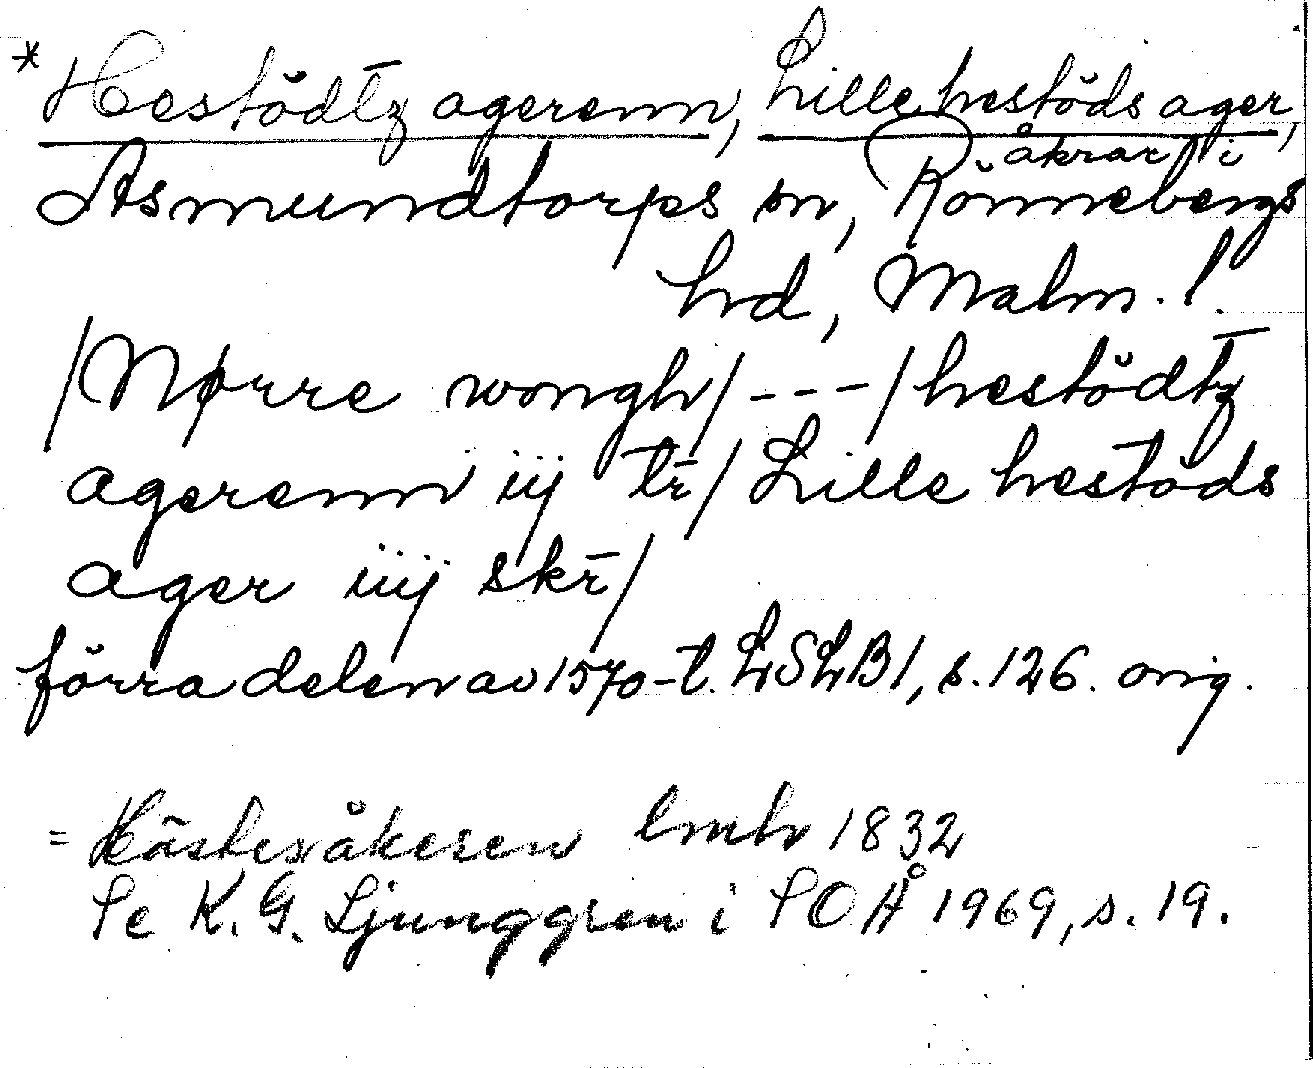 * Hestödtz agerenn, Lille hestöds ager,
åkrar i
Asmundtorps sn, Rönnebergs
hd, Malm. l.
/Nørre wongh/ - - - /hestödtz
agerenn iij tr̄/ Lille hestöds
ager iiij skr̄/
förra delen av 1570-t. LSLB1, s. 126. orig.
= Hästesåkeren lmh 1832
Se K. G. Ljunggren i SOÅ 1969, s. 19.